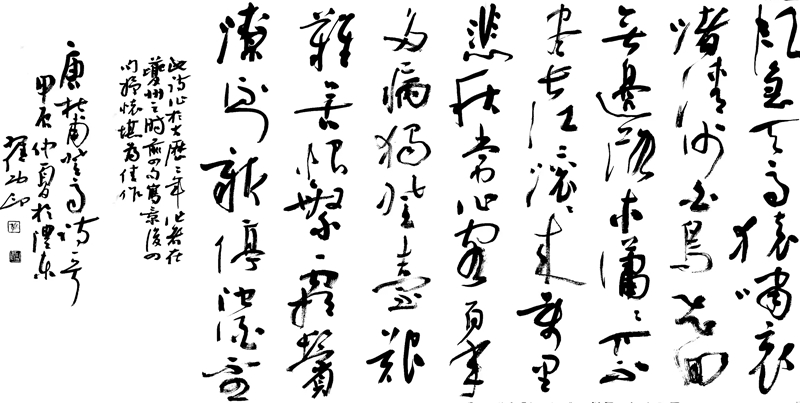 風急天高猿嘯哀
渚清沙白鳥飛回
無邊落木蕭〻下不
盡長江滾〻來萬里
悲秋常作客百年
多病獨登臺艱
難苦恨繁霜鬢
潦倒新停濁酒杯
此詩作於大歷三年作者在
夔州之時前四句寫景後四
句抒懷堪為佳作
唐杜甫登高詩一首
甲辰仲夏於澧東